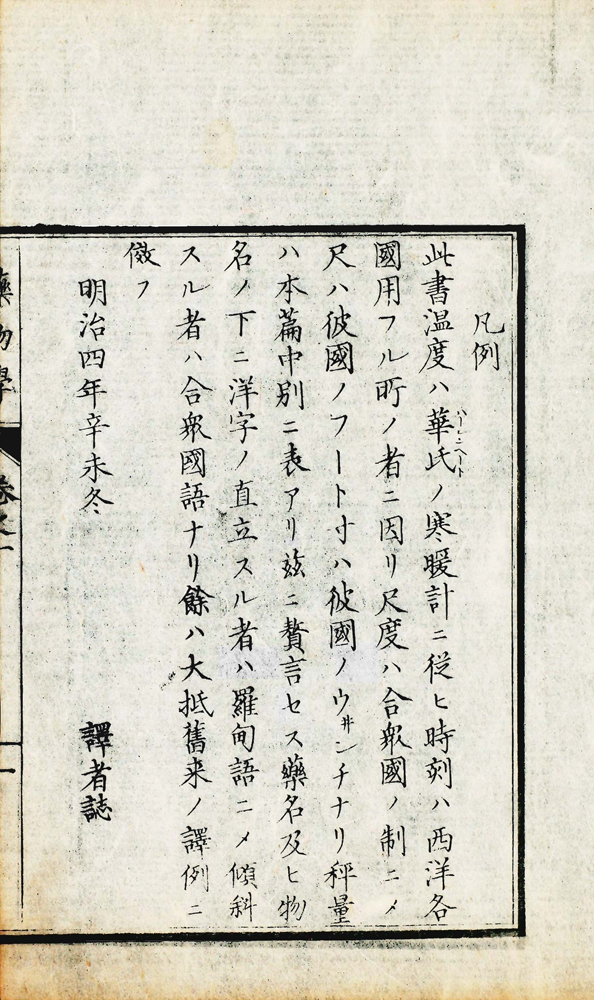 凡例
此書温度ハ華氏ノ寒暖計ニ従ヒ時刻ハ西洋各
國用フル所ノ者ニ因リ尺度ハ合衆國ノ制ニメ
尺ハ彼國ノフート寸ハ彼國ノウヰンチナリ秤量
ハ本篇中別ニ表アリ玆ニ贅言セス藥名及ヒ物
名ノ下ニ洋字ノ直立スル者ハ羅甸語ニメ傾斜
スル者ハ合衆國語ナリ餘ハ大抵舊来ノ譯例ニ
傚フ
明治四年辛未冬
譯者誌
藥物學
卷之一
一